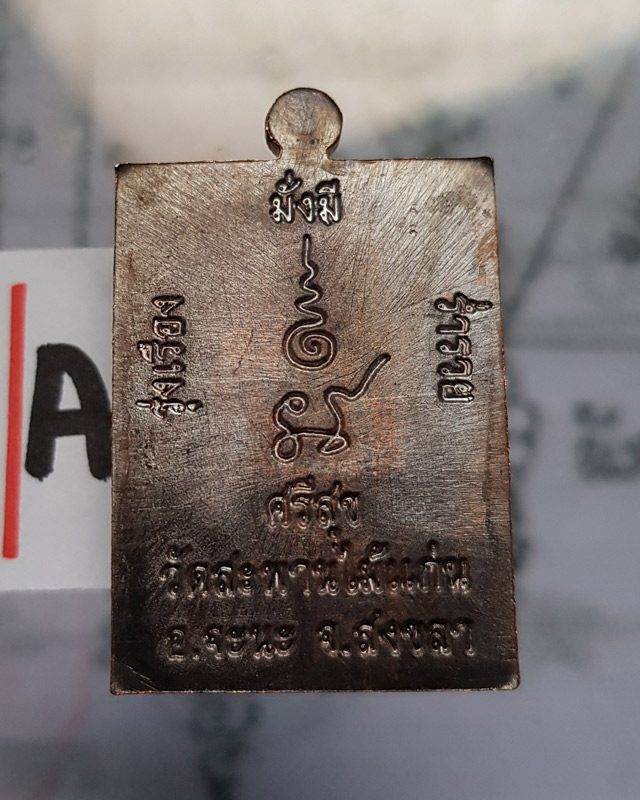 มั่งมี
รุ่งเรือง
ร่ำรวย
ศรีสุข
วัดสะพานไม้แก่น
อ.จะนะ จ.สงขลา
A